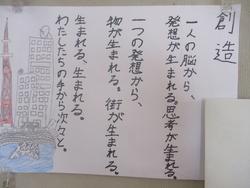 創造
一人の脳から、
発想が生まれる。思考が生まれる。
一つの発想から、
物が生まれる。街が生まれる。
生まれる、生まれる。
わたしたちの手から次々と。